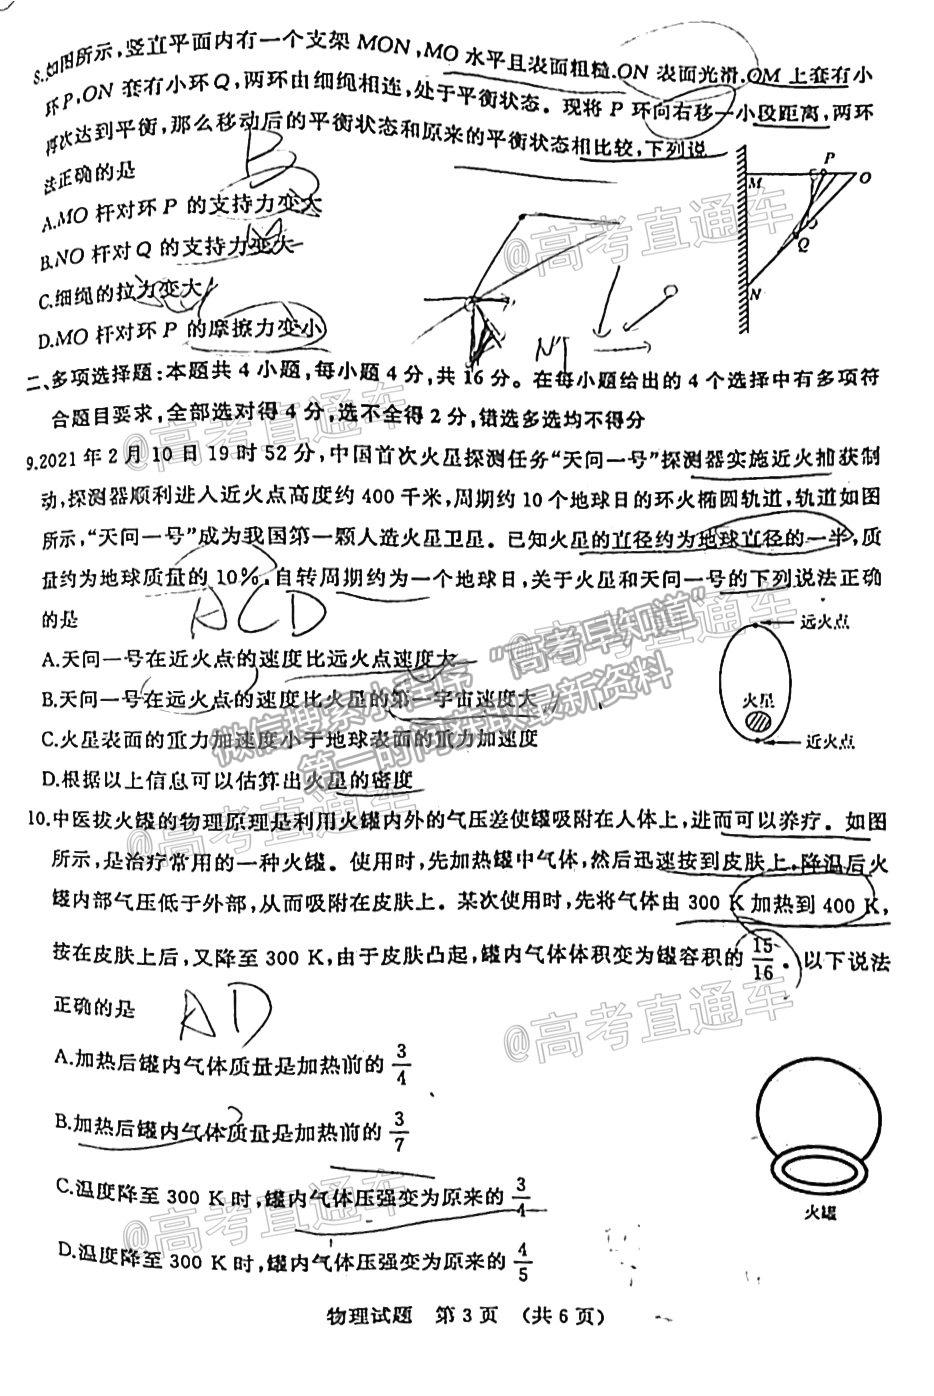 8.如图所示,竖直平面内有一个支架MON,MO水平且表面粗糙,ON表面光滑,OM上套有小
环P,ON套有小环Q,两环由细绳相连,处于平衡状态。现将P环向右移一小段距离,两环
再次达到平衡,那么移动后的平衡状态和原来的平衡状态相比较,下列说
法正确的是
B
A.MO杆对环P的支持力变大
B.NO杆对Q的支持力变大
C.细绳的拉力变大
D.MO杆对环P的摩擦力变小
M
P
O
Q
N
@高考直通车
二、多项选择题:本题共4小题,每小题4分,共16分。在每小题给出的4个选择中有多项符
合题目要求,全部选对得4分,选不全得2分,错选多选均不得分
@高考直通车
9.2021年2月10日19时52分,中国首次火星探测任务“天问一号”探测器实施近火捕获制
动,探测器顺利进入近火点高度约400千米,周期约10个地球日的环火椭圆轨道,轨道如图
所示,“天问一号”成为我国第一颗人造火星卫星。已知火星的直径约为地球直径的一半,质
量约为地球质量的10%,自转周期约为一个地球日,关于火星和天问一号的下列说法正确
的是
ACD
A.天问一号在近火点的速度比远火点速度大
B.天问一号在远火点的速度比火星的第一宇宙速度大
C.火星表面的重力加速度小于地球表面的重力加速度
D.根据以上信息可以估算出火星的密度
远火点
火星
近火点
@高考直通车
@高考直通车
“高考早知道”
微信搜索小程序
第一时间获取最新资料
10.中医拔火罐的物理原理是利用火罐内外的气压差使罐吸附在人体上,进而可以养疗。如图
所示,是治疗常用的一种火罐。使用时,先加热罐中气体,然后迅速按到皮肤上,降温后火
罐内部气压低于外部,从而吸附在皮肤上。某次使用时,先将气体由300 K加热到400 K,
按在皮肤上后,又降至300 K,由于皮肤凸起,罐内气体体积变为罐容积的15/16。以下说法
正确的是
AD
A.加热后罐内气体质量是加热前的3/4
B.加热后罐内气体质量是加热前的3/7
C.温度降至300 K时,罐内气体压强变为原来的3/4
D.温度降至300 K时,罐内气体压强变为原来的4/5
火罐
@高考直通车
@高考直通车
@高考直通车
物理试题 第3页 (共6页)